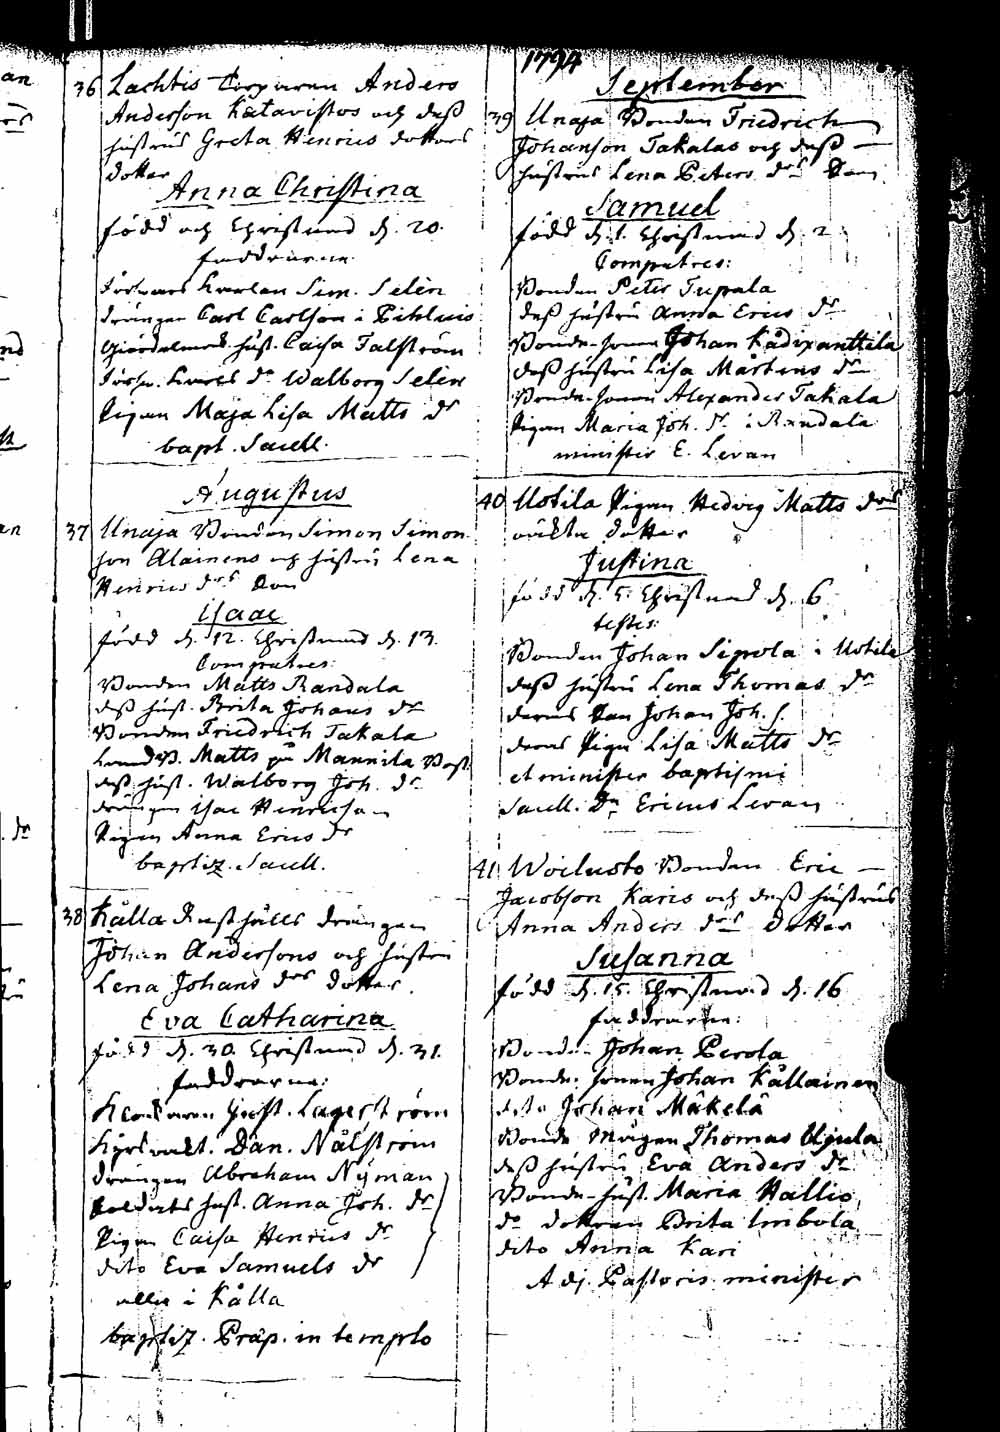 36 Lachtis Torparen Anders
Anderson Katavistos och deß
hustrus Greta Henrics dotters
dotter
Anna Christina
född och Christnad d. 20.
faddrarne
Sim. Selèn
drängen Carl Carlson i Pihlus
hust. Caisa Talström
dr Walborg Selèn
Pigan Maja Lisa Matts dr
bapt. Sacell.
Augustus
37 Unaja Bonden Simon Simon
son Alainens och hustru Lena
Henrics drs Son
Isaac
född d. 12. Christnad d. 13.
Compatres:
Bonden Matts Randala
deß hust. Brita Johans dr
Bonden Friedrich Takala
Matts på Mannila
deß hust. Walborg Joh. dr
drängen Isac Henricson
Pigan Anna Erics dr
baptiz. Sacell.
38 Kålla Rusthålls drängen
Johan Andersons och hustru
Lena Johans drs dotter.
Eva Catharina
född d. 30. Christnad d. 31.
faddrarne:
Gust. Lagerström
Dan. Nålström
drängen Abraham Nÿman
Soldats hust. Anna Joh. dr
Pigan Caisa Henrics dr
dito Eva Samuels dr
alla i Kålla
baptiz. Præp. in templo
1794
September
39 Unaja Bonden Friedrich
Johanson Takalas och deß
hustrus Lena Peters drs Son
Samuel
född d. 1. Christnad d. 2
Compatres:
Bonden Peter Tupala
deß hustru Anna Erics dr
Bonde-sonen Johan Kådixanttila
deß hustru Lisa Mårtens dr
Bonde-sonen Alexander Takala
Pigan Maria Joh. dr i Randala
minister E. Levan
40 Uotila Pigan Hedvig Matts drs
oäkta dotter
Justina
född d. 5. Christnad d. 6
testes:
Bonden Johan Sipola i Uotila
deß hustru Lena Thomas dr
deras Son Johan Joh. s.
deras Piga Lisa Matts dr
et minister baptismi
Sacell. Dn Ericus Levan
41 Woiluoto Bonden Eric
Jacobson Karis och deß hustrus
Anna Anders drs dotter
Susanna
född d. 15. Christnad d. 16
faddrarne:
Bonden Johan Perola
Bonde-sonen Johan Kållainen
dito Johan Mäkelä
Bonde mågen Thomas Ujula
deß hustru Eva Anders dr
Bonde-hust. Maria Hallio
do dottren Brita Imbola
dito Anna Kari
Adj. Pastoris minister